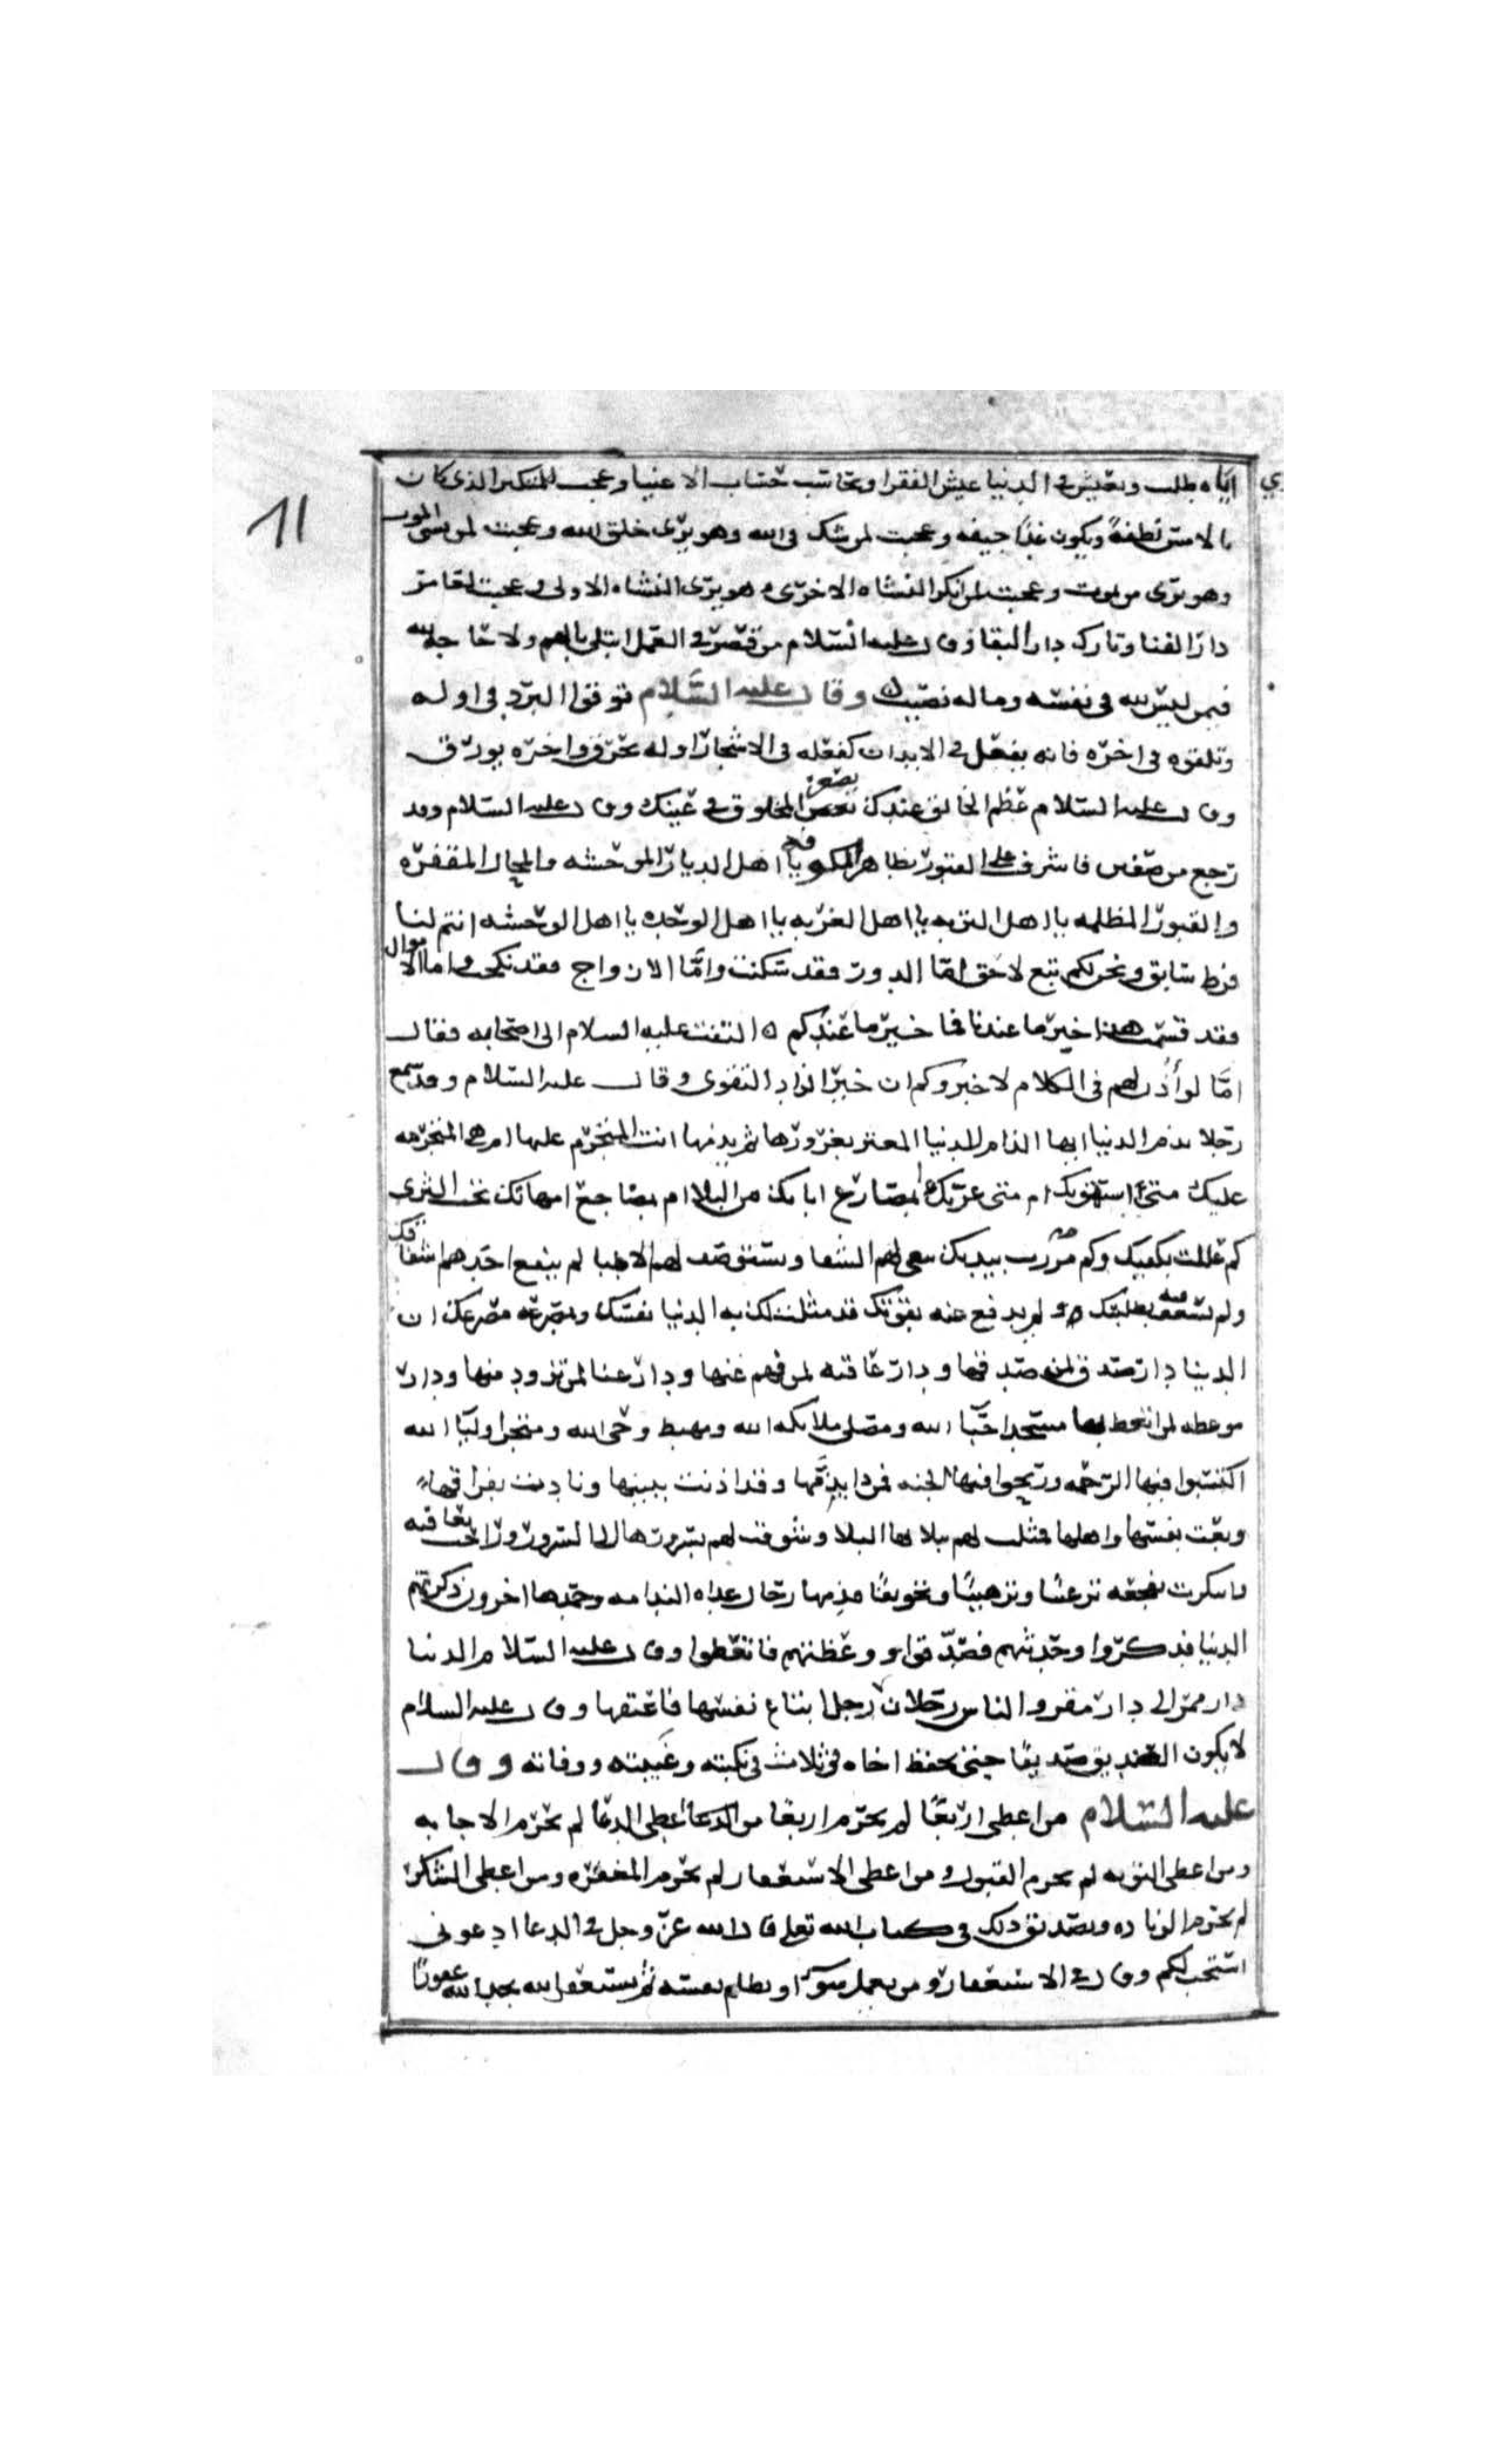 11
اياه طلب ويعيش في الدنيا عيش الفقرا ويحاسب حساب الاغنيا وعجبت للمتكبر الذي كان
بالامس نطفة ويكون غدا جيفه وعجبت لمن شك في الله وهو يرى خلق الله وعجبت لمن نسي الموت
وهو يرى من يموت وعجبت لمن انكر النشاه الاخرى وهو يرى النشاه الاولى وعجبت لعامر
دار الفنا وتارك دار البقا وقال عليه السلام من قصر في العمل ابتلي بالهم ولا حاجه لله
فيمن ليس لله في نفسه وماله نصيب وقال عليه السلام توقوا البرد في اوله
وتلقوه في اخره فانه يفعل في الابدان كفعله في الاشجار اوله يحرق واخره يورق
وقال عليه السلام عظم الخالق عندك يصغر المخلوق في عينك وقال عليه السلام وقد
رجع من صفين فاشرف على القبور بظاهر الكوفه يا اهل الديار الموحشه والمحال المقفره
والقبور المظلمه يا اهل التربه يا اهل الغربه يا اهل الوحده يا اهل الوحشه انتم لنا
فرط سابق ونحن لكم تبع لاحق اما الدور فقد سكنت واما الازواج فقد نكحت واما الاموال
فقد قسمت هذا خبر ما عندنا فما خبر ما عندكم التفت عليه السلام الى اصحابه فقال
اما لو أذن لهم في الكلام لاخبروكم ان خير الزاد التقوى وقال عليه السلام وقد سمع
رجلا يذم الدنيا ايها الذام للدنيا المغتر بغرورها ثم يذمها انت المتجرم عليها ام هي المتجرمه
عليك متى استهوتك ام متى غرتك ابمصارع ابايك من البلا ام بمضاجع امهاتك تحت الثرى
كم عللت بكفيك وكم مرضت بيديك تبغي لهم الشفا وتستوصف لهم الاطبا لم ينفع احدهم اشفاقك
ولم تسعف بطلبتك ولم يدفع عنه بقوتك قد مثلت لك به الدنيا نفسك وبمصرعه مصرعك ان
الدنيا دار صدق لمن صدقها ودار عافيه لمن فهم عنها ودار غنا لمن تزود منها ودار
موعظه لمن اتعظ بها مسجد احبا الله ومصلى ملايكه الله ومهبط وحي الله ومتجر اوليا الله
اكتسبوا فيها الرحمه وربحوا فيها الجنه فمن ذا يذمها وقد اذنت ببينها ونادت بفراقها
ونعت نفسها واهلها فمثلت لهم ببلاها البلا وشوقت لهم بسرورها الى السرور وراحت بعافيه
وابتكرت بفجعه ترغيبا وترهيبا وتخويفا فذمها رجال غداه الندامه وحمدها اخرون ذكرتهم
الدنيا فذكروا وحدثهم فصدقوا ووعظتهم فاتعظوا وقال عليه السلام الدنيا
دار ممر الى دار مقر والناس رجلان رجل ابتاع نفسها فاعتقها وقال عليه السلام
لا يكون الصديق صديقا حتى يحفظ اخاه في ثلاث في نكبته وغيبته ووفاته وقال
عليه السلام من اعطي اربعا لم يحرم اربعا من اعطي الدعا لم يحرم الاجابه
ومن اعطي التوبه لم يحرم القبول ومن اعطي الاستغفار لم يحرم المغفره ومن اعطي الشكر
لم يحرم الزياده وتصديق ذلك في كتاب الله تعلى قال الله عز وجل في الدعا ادعوني
استجب لكم وقال في الاستغفار ومن يعمل سوا او يظلم نفسه ثم يستغفر الله يجد الله غفورا